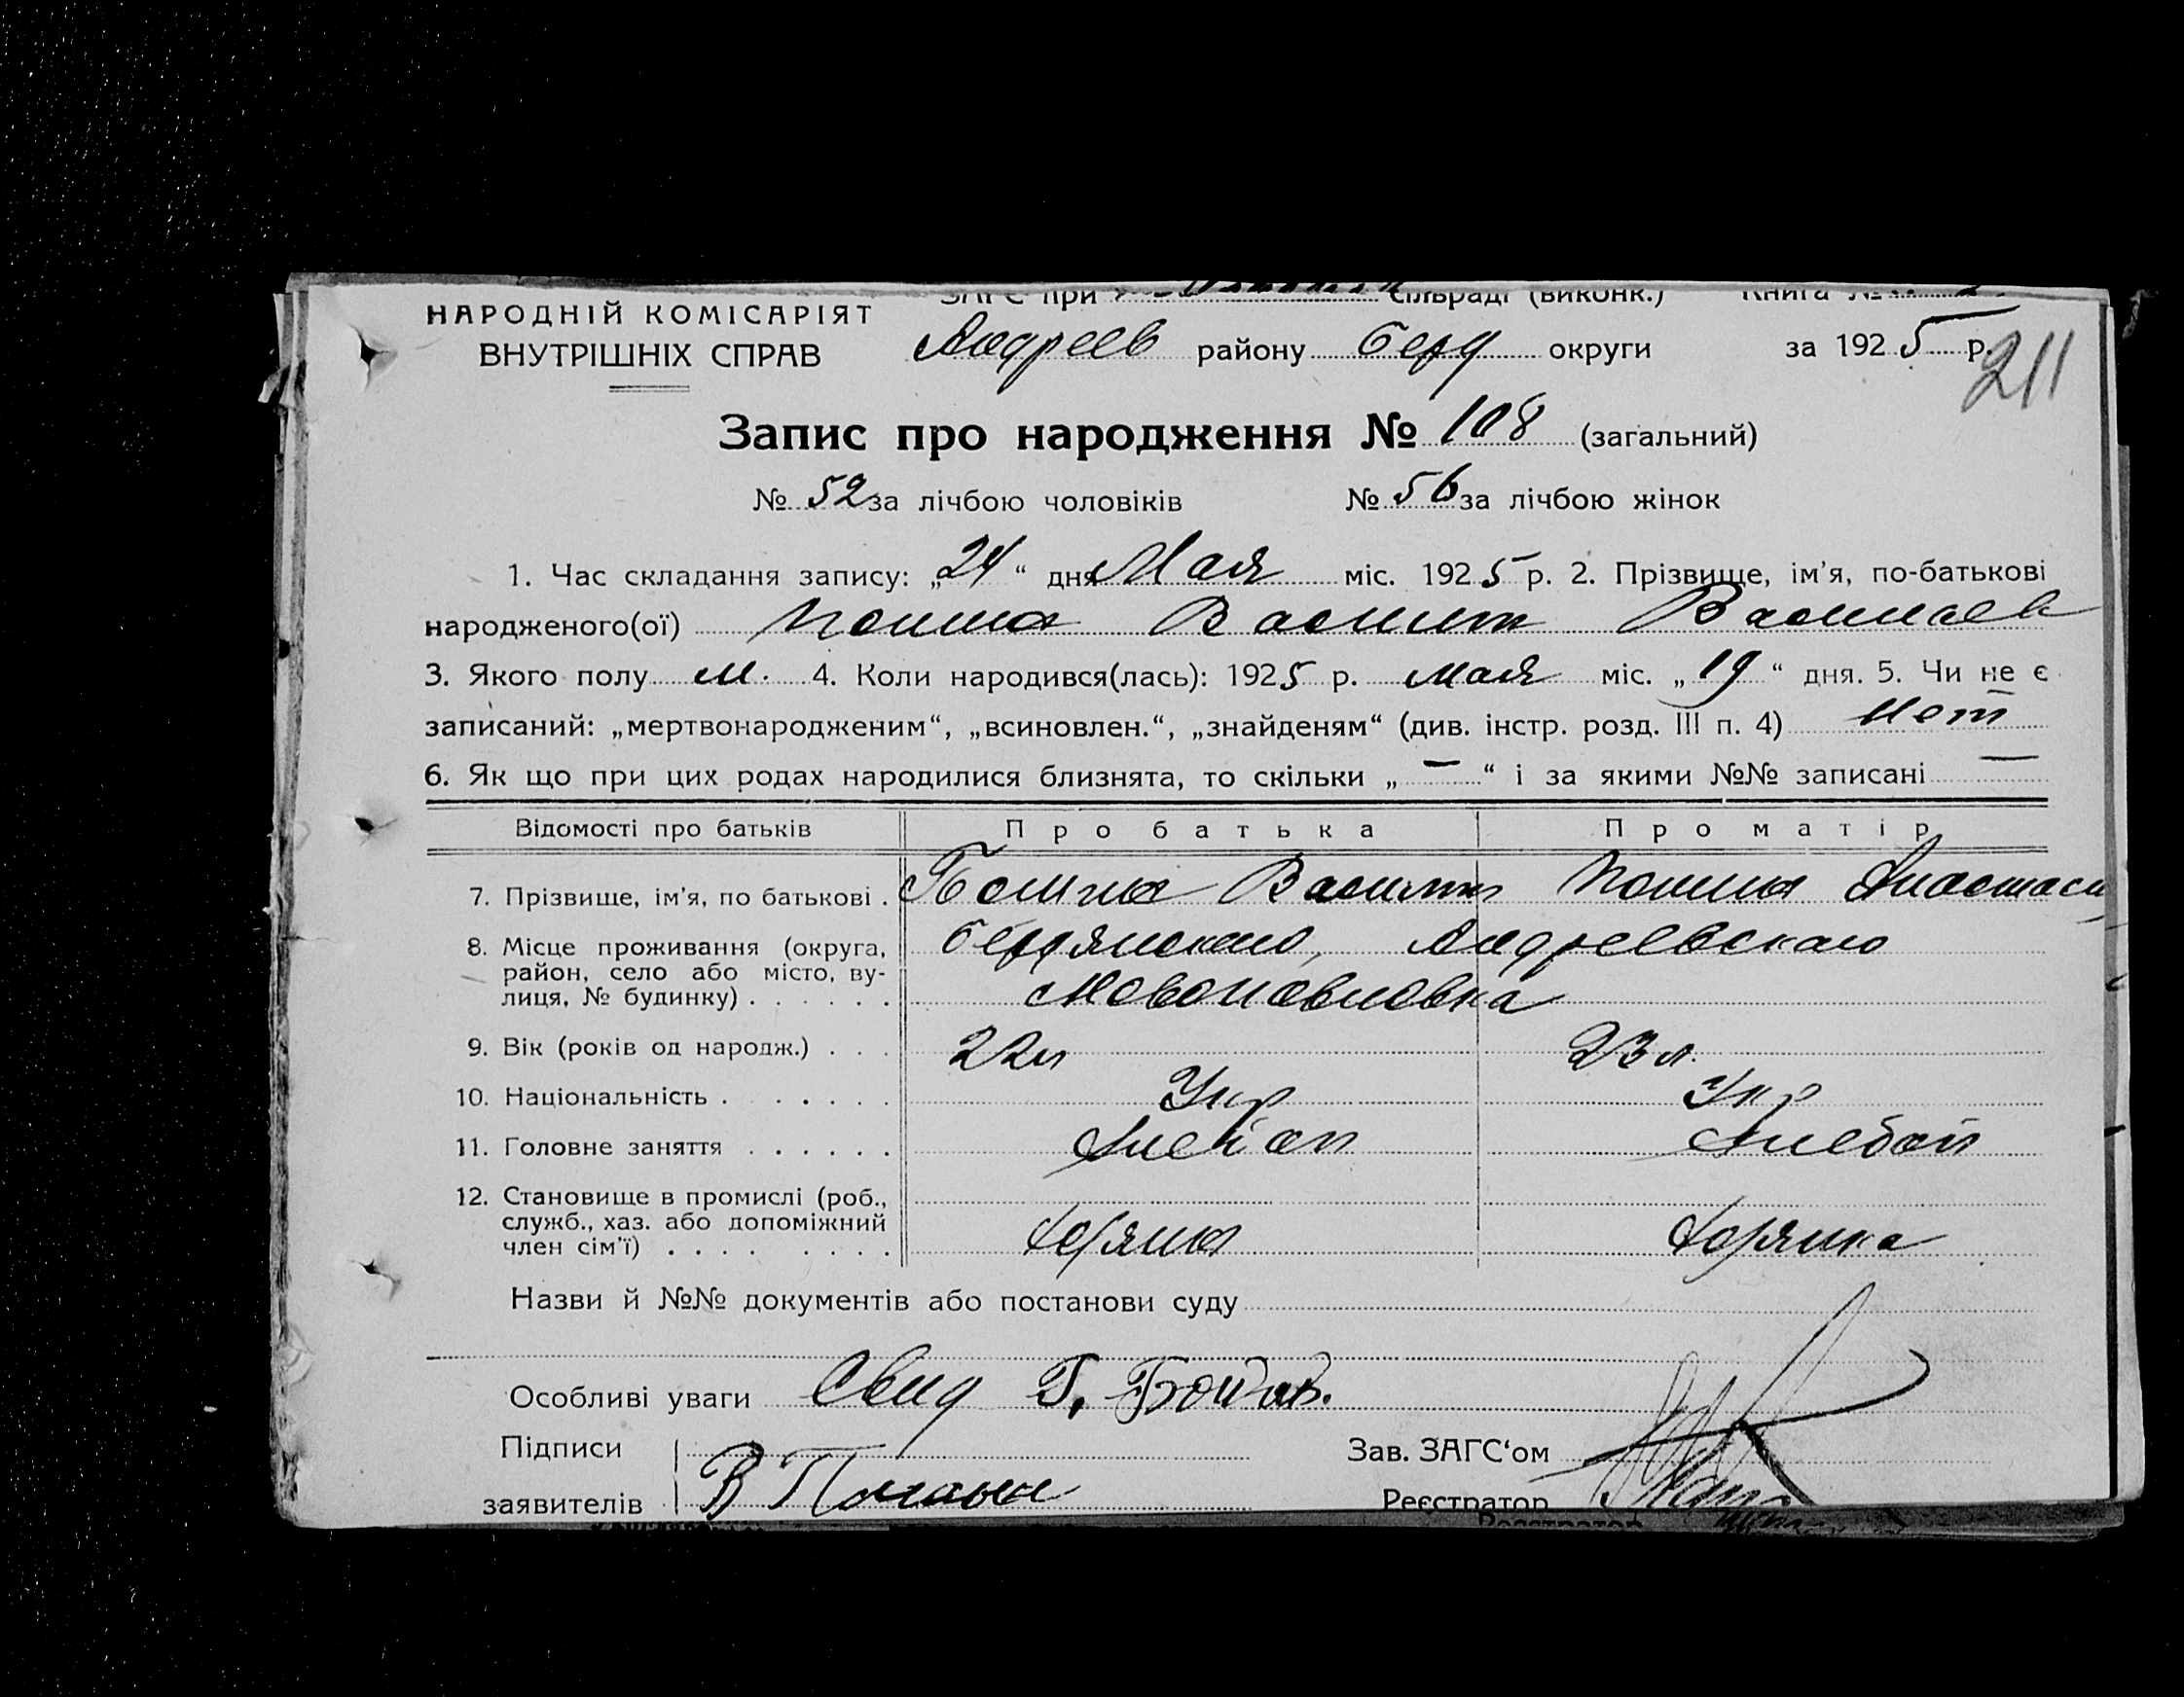 НАРОДНІЙ КОМІСАРІЯТ
ВНУТРІШНІХ СПРАВ
ЗАГС при сільраді (виконк.) Книга №
Андреев району Берд округи за 1925 р.
211
Запис про народження № 108 (загальний)
№ 52 за лічбою чоловіків № 56 за лічбою жінок
1. Час складання запису: „24“ дня Мая міс. 1925 р. 2. Прізвище, ім’я, по-батькові
народженого(ої) Василий Васильев
3. Якого полу м. 4. Коли народився(лась): 1925 р. Мая міс. „19“ дня. 5. Чи не є
записаний: „мертвонародженим“, „всиновлен.“, „знайденям“ (див. інстр. розд. III п. 4) Нет
6. Як що при цих родах народилися близнята, то скільки „—“ і за якими №№ записані —
Відомості про батьків Про батька Про матір
7. Прізвище, ім’я, по батькові . Василий Анастаси
8. Місце проживання (округа, Бердянского, Андреевскаго
район, село або місто, ву-
лиця, № будинку) . . . . . . Новопавловка
9. Вік (років од народж.) . . . 22 л 23 л.
10. Національність . . . . . . Укр Укр
11. Головне заняття . . . . . . Хлебоп Хлебоп
12. Становище в промислі (роб.,
служб., хаз. або допоміжний
член сім’ї) . . . . . . . .
Назви й №№ документів або постанови суду
Особливі уваги Свид
Підписи Зав. ЗАГС‘ом
заявителів В Реєстратор